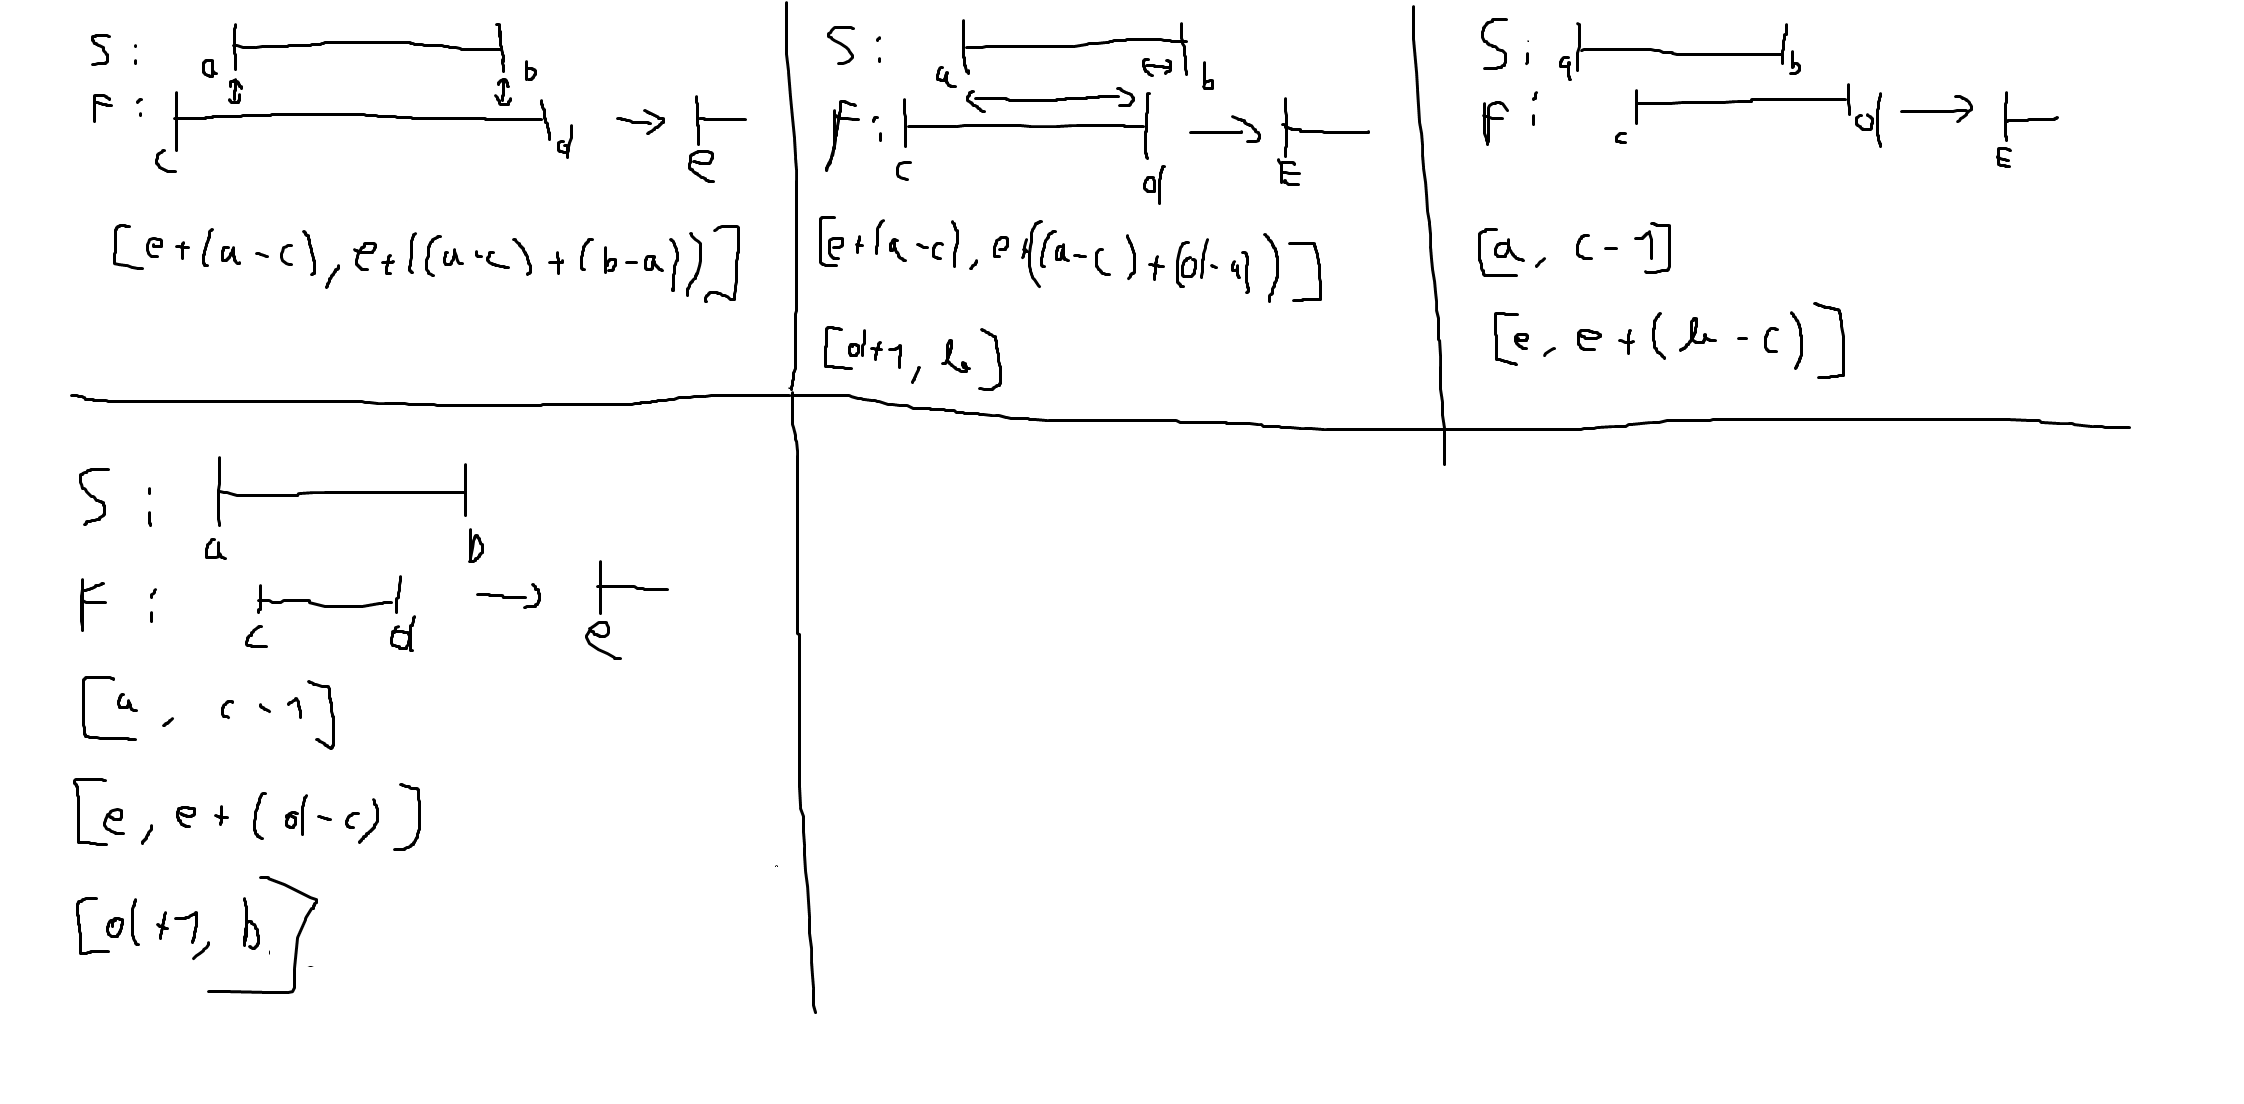 S:
a
b
F:
c
d
→
e
[e+(a-c), e+((a-c)+(b-a))]
S:
a
b
F:
c
d
→
E
[e+(a-c), e+((a-c)+(d-a))]
[d+1, b]
S:
a
b
F:
c
d
→
E
[a, c-1]
[e, e+(b-c)]
S:
a
b
F:
c
d
→
e
[a, c-1]
[e, e+(d-c)]
[d+1, b]